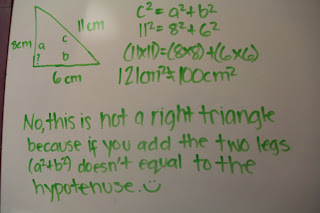 11 cm
8cm a c
? b
6 cm
c² = a² + b²
11² = 8² + 6²
(11x11) = (8x8) + (6x6)
121cm² ≠ 100cm²
No, this is not a right triangle
because if you add the two legs
(a²+b²) doesn't equal to the
hypotenuse. :)